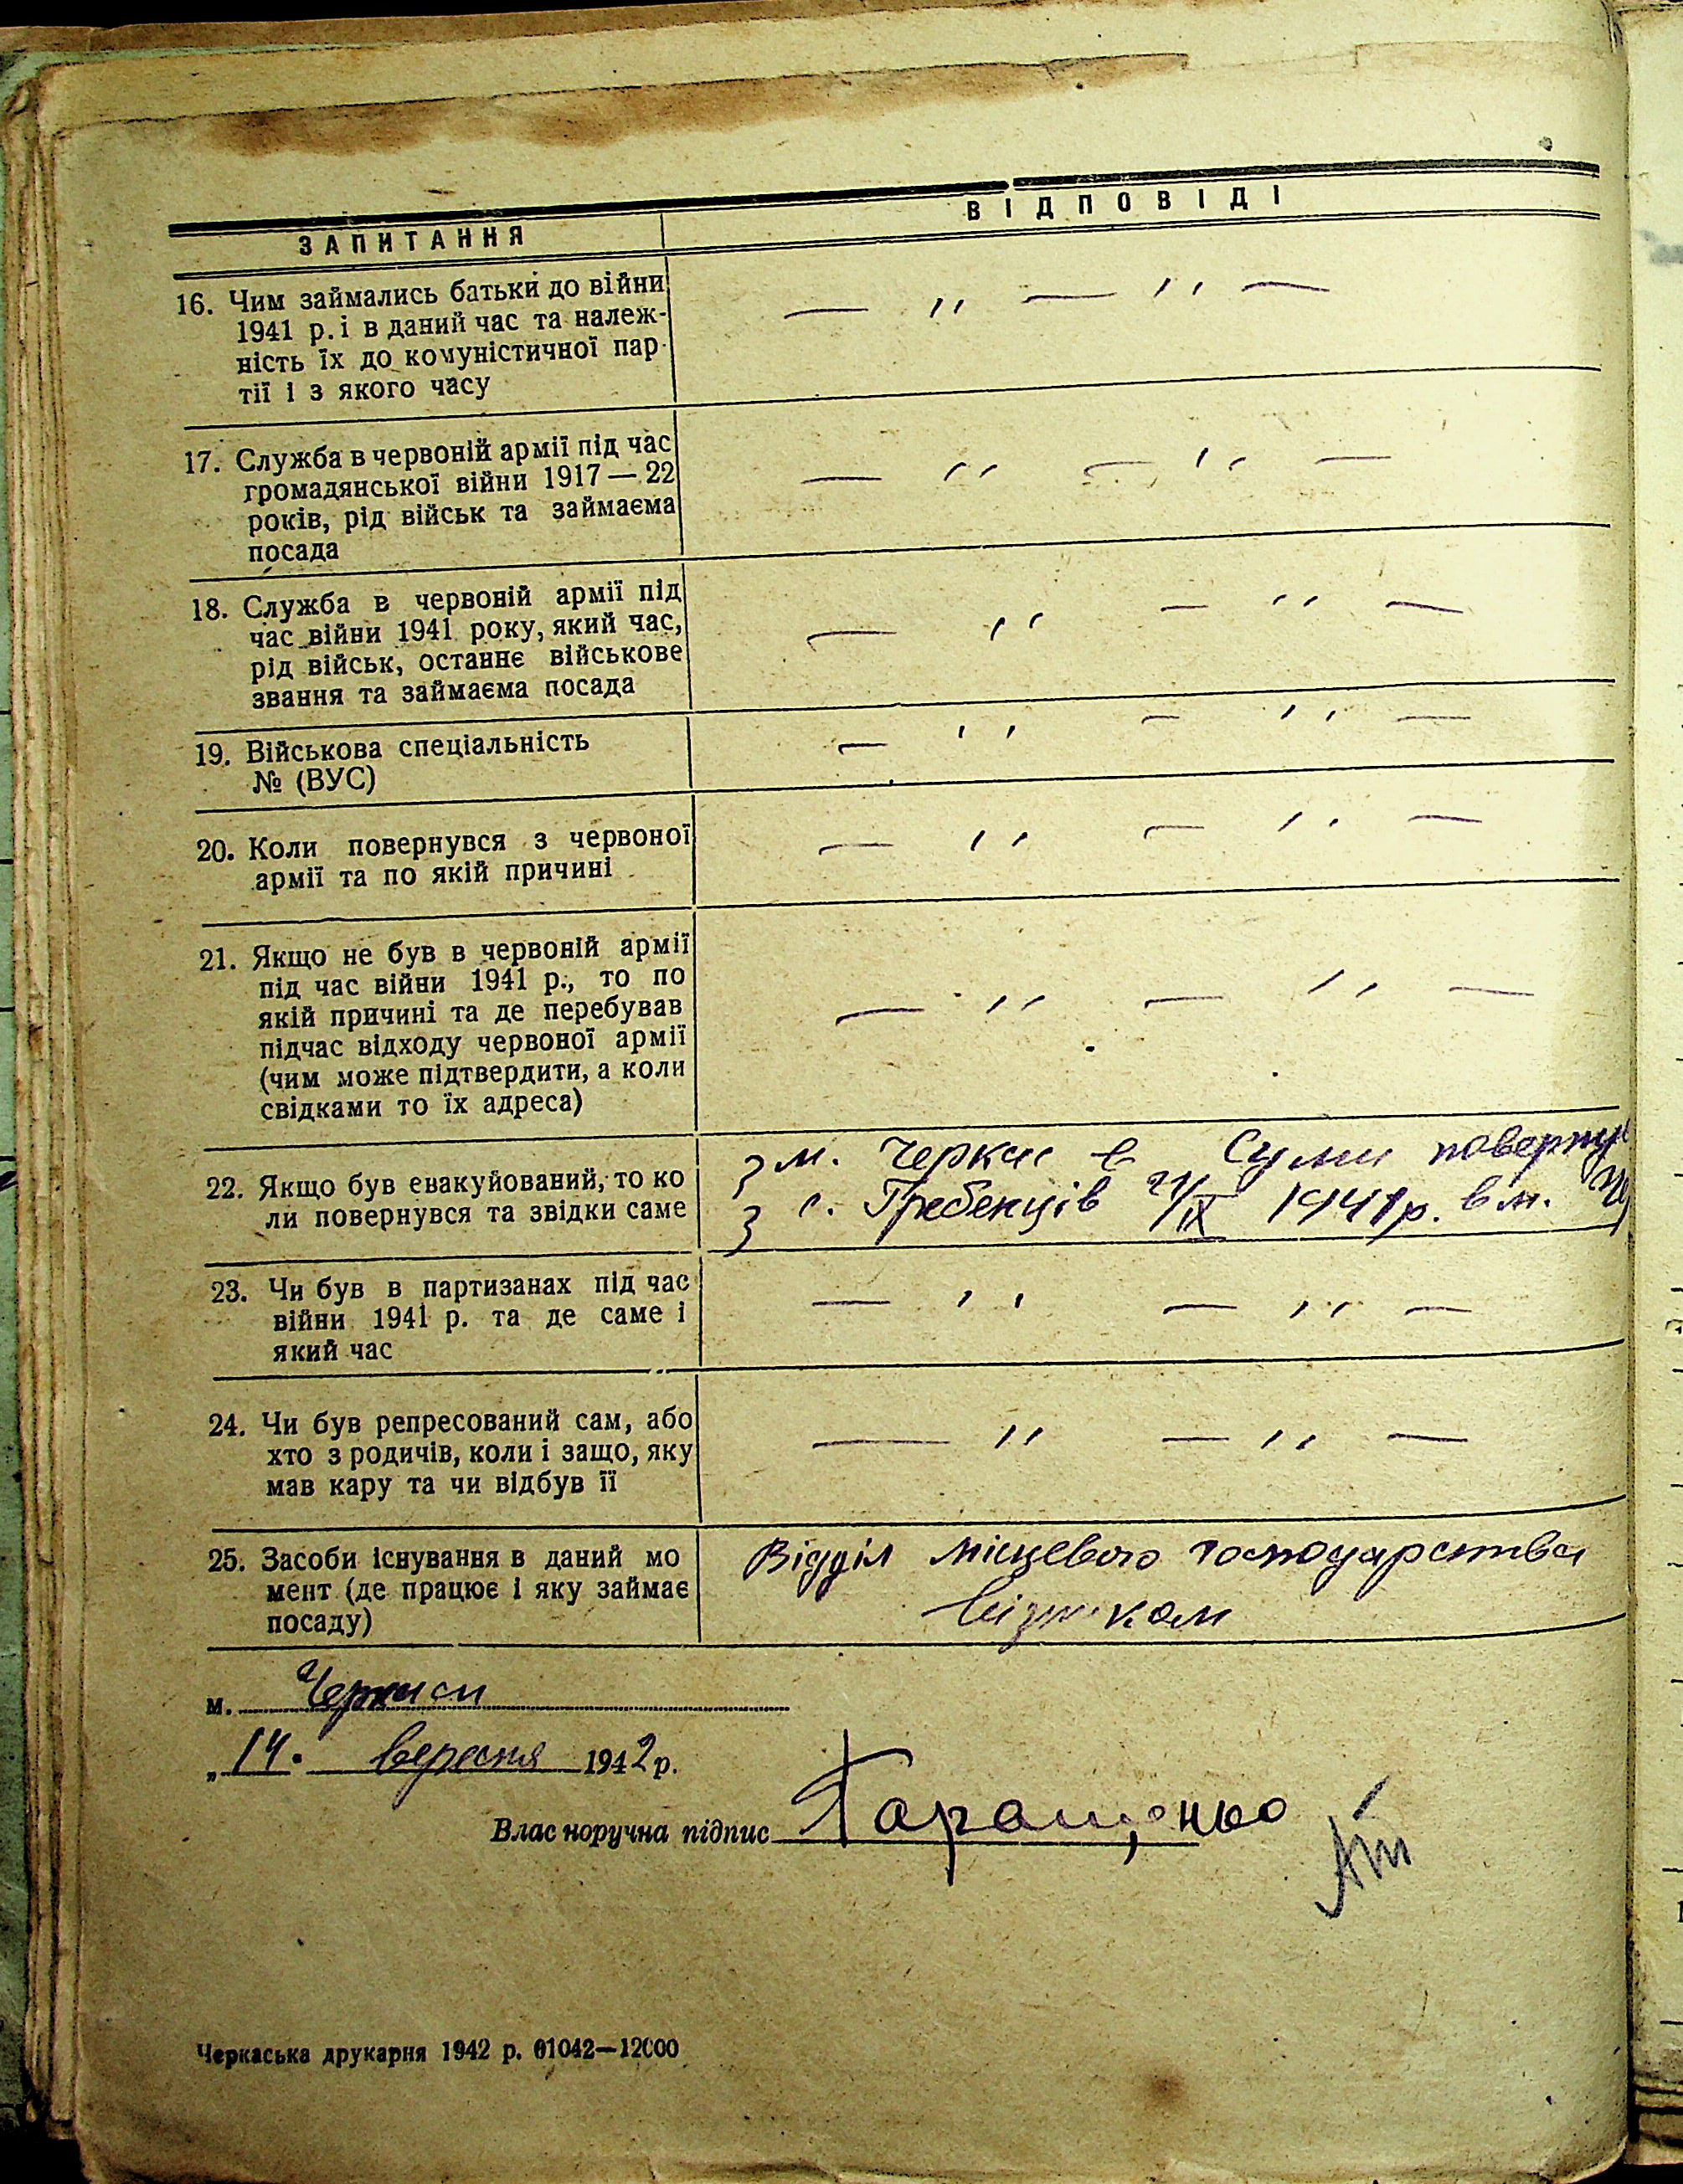 ЗАПИТАННЯ
ВІДПОВІДІ
16. Чим займались батьки до війни
1941 р. і в даний час та належ-
ність їх до комуністичної пар-
тії і з якого часу
— ,, — ,, —
17. Служба в червоній армії під час
громадянської війни 1917 — 22
років, рід військ та займаєма
посада
— ,, — ,, —
18. Служба в червоній армії під
час війни 1941 року, який час,
рід військ, останнє військове
звання та займаєма посада
— ,, — ,, —
19. Військова спеціальність
№ (ВУС)
— ,, — ,, —
20. Коли повернувся з червоної
армії та по якій причині
— ,, — ,, —
21. Якщо не був в червоній армії
під час війни 1941 р., то по
якій причині та де перебував
підчас відходу червоної армії
(чим може підтвердити, а коли
свідками то їх адреса)
— ,, — ,, —
22. Якщо був евакуйований, то ко
ли повернувся та звідки саме
З м. Черкас в Суми поверну
З с. Гребенців /IX 1941р. в м. Че
23. Чи був в партизанах під час
війни 1941 р. та де саме і
який час
— ,, — ,, —
24. Чи був репресований сам, або
хто з родичів, коли і защо, яку
мав кару та чи відбув її
— ,, — ,, —
25. Засоби існування в даний мо
мент (де працює і яку займає
посаду)
Відділ місцевого господарства
візником
м. Черкаси
„14. вересня 1942 р.
Власноручна підпис Таращенко
Черкаська друкарня 1942 р. 01042—12000